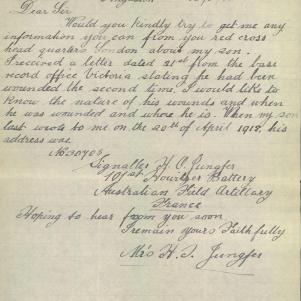 Dear Sir
Would you kindly try to get me any
information you can from you red cross
head quarters London about my son.
I received a letter dated 21st from the base
record office Victoria stating he had been
wounded the second time, I would like to
know the nature of his wounds and when
he was wounded and whore he is. When my son
last wrote to me on the 20th of April 1918, his
address was.
No 30708
Signaller H. O. Jungfer
101st Howitzer Battery
Australian Field Artillary
France
Hoping to hear from you soon
I remain yours Faithfully
Mrs H. J. Jungfer